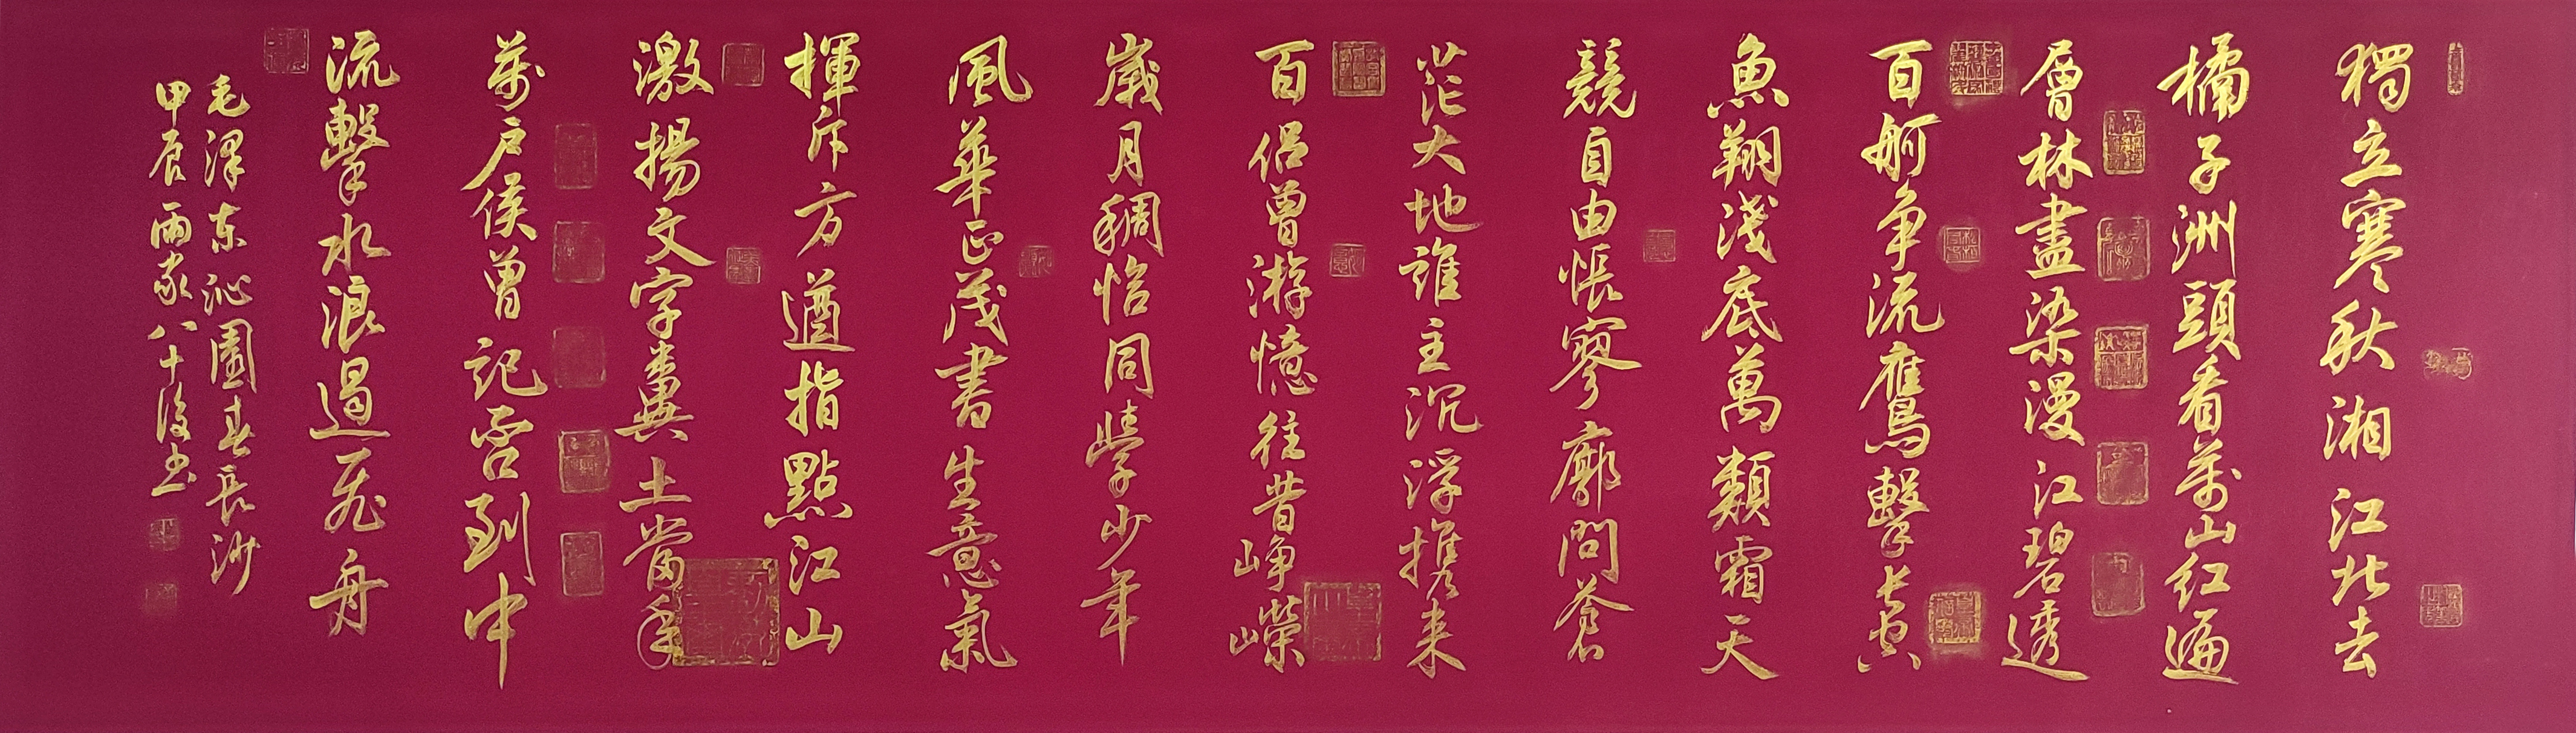 獨立寒秋湘江北去
橘子洲頭看萬山紅遍
層林盡染漫江碧透
百舸争流鷹擊長空
魚翔淺底萬類霜天
競自由悵寥廓問蒼
茫大地誰主沉浮攜来
百侣曾游憶往昔峥嶸
崴月稠恰同學少年
風華正茂書生意氣
揮斥方遒指點江山
激揚文字糞土當年
萬户侯曾記否到中
流擊水浪遏飛舟
毛澤东沁園春長沙
甲辰雨家八十後书